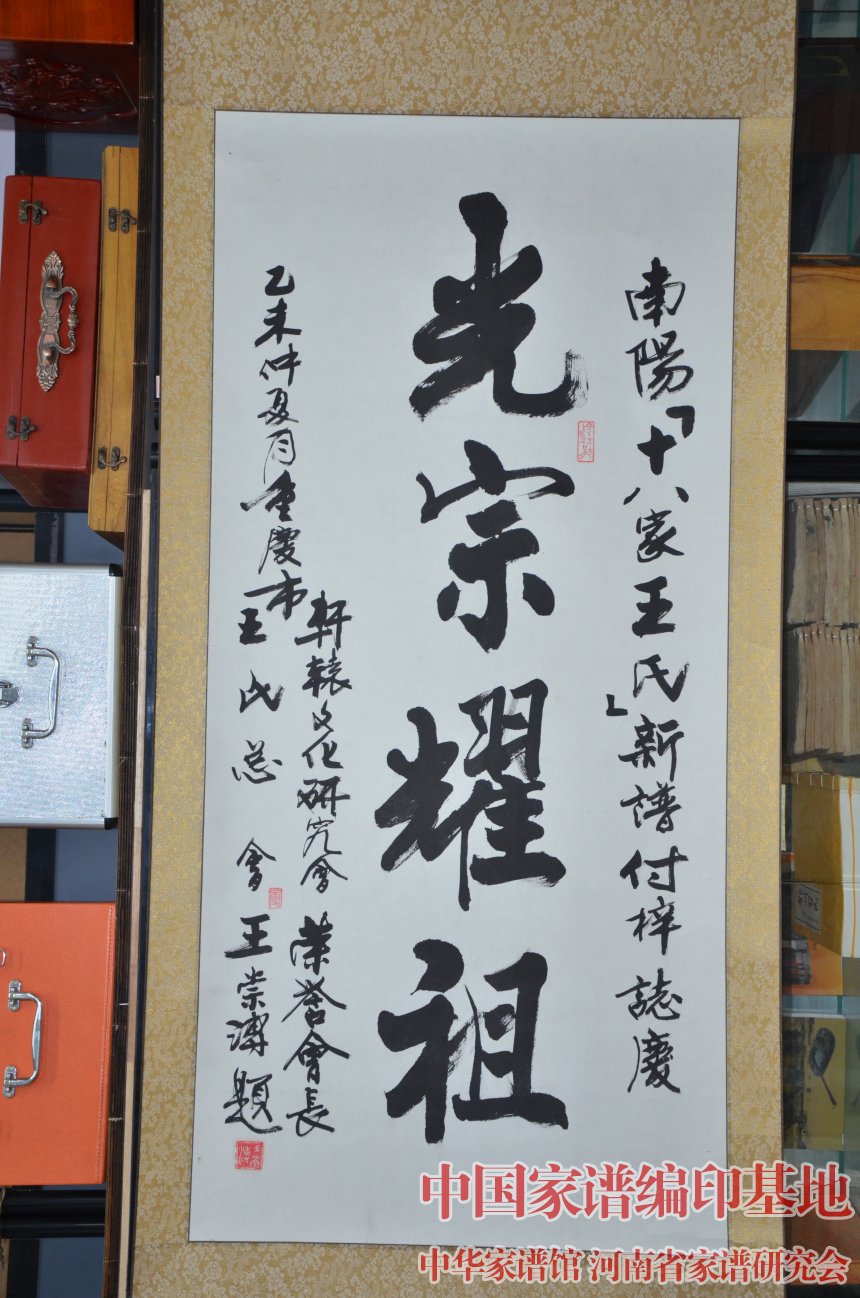 南陽「十八家王氏」新譜付梓誌慶
光宗耀祖
乙未仲夏月重慶市
軒轅文化研究會
王氏总會
榮誉會長
王崇溥題
中国家谱编印基地
中华家谱馆 河南省家谱研究会